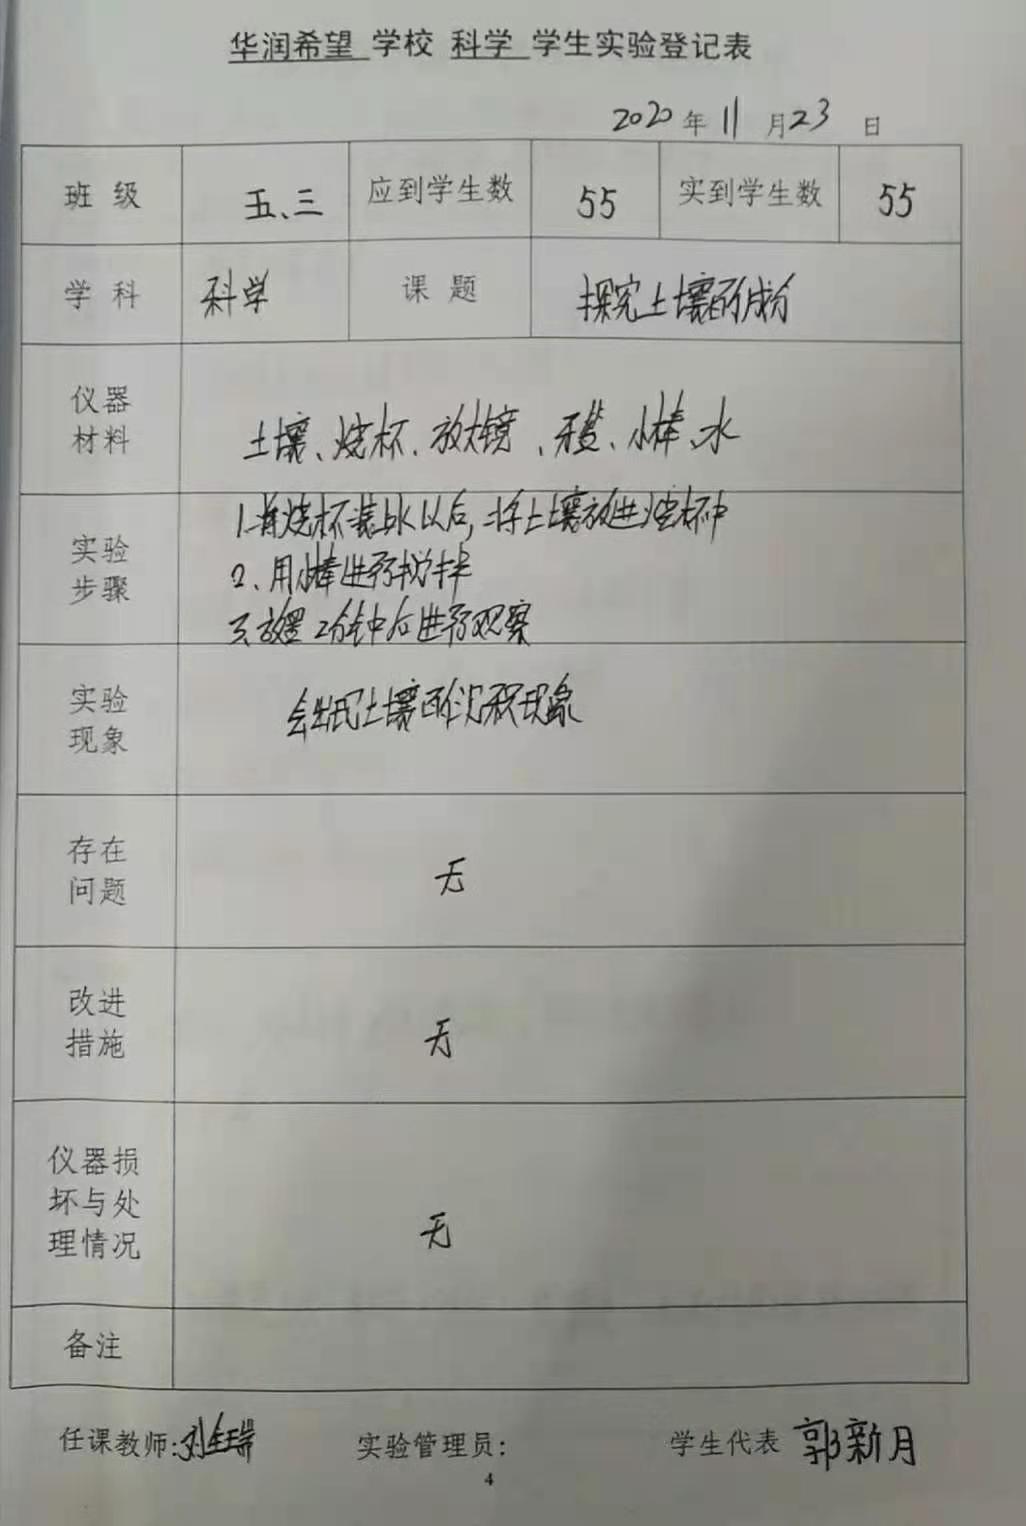 华润希望 学校 科学 学生实验登记表
2020 年 11 月 23 日
班级 五、三 应到学生数 55 实到学生数 55
学科 科学 课题 探究土壤的成分
仪器
材料
土壤、烧杯、放大镜、、小棒、水
实验
步骤
1.将烧杯装上水以后,将土壤放进烧杯中
2、用小棒进行搅拌
3.放置2分钟后进行观察
实验
现象
会出现土壤的沉积现象
存在
问题
无
改进
措施
无
仪器损
坏与处
理情况
无
备注
任课教师:刘 实验管理员: 学生代表 郭新月
4